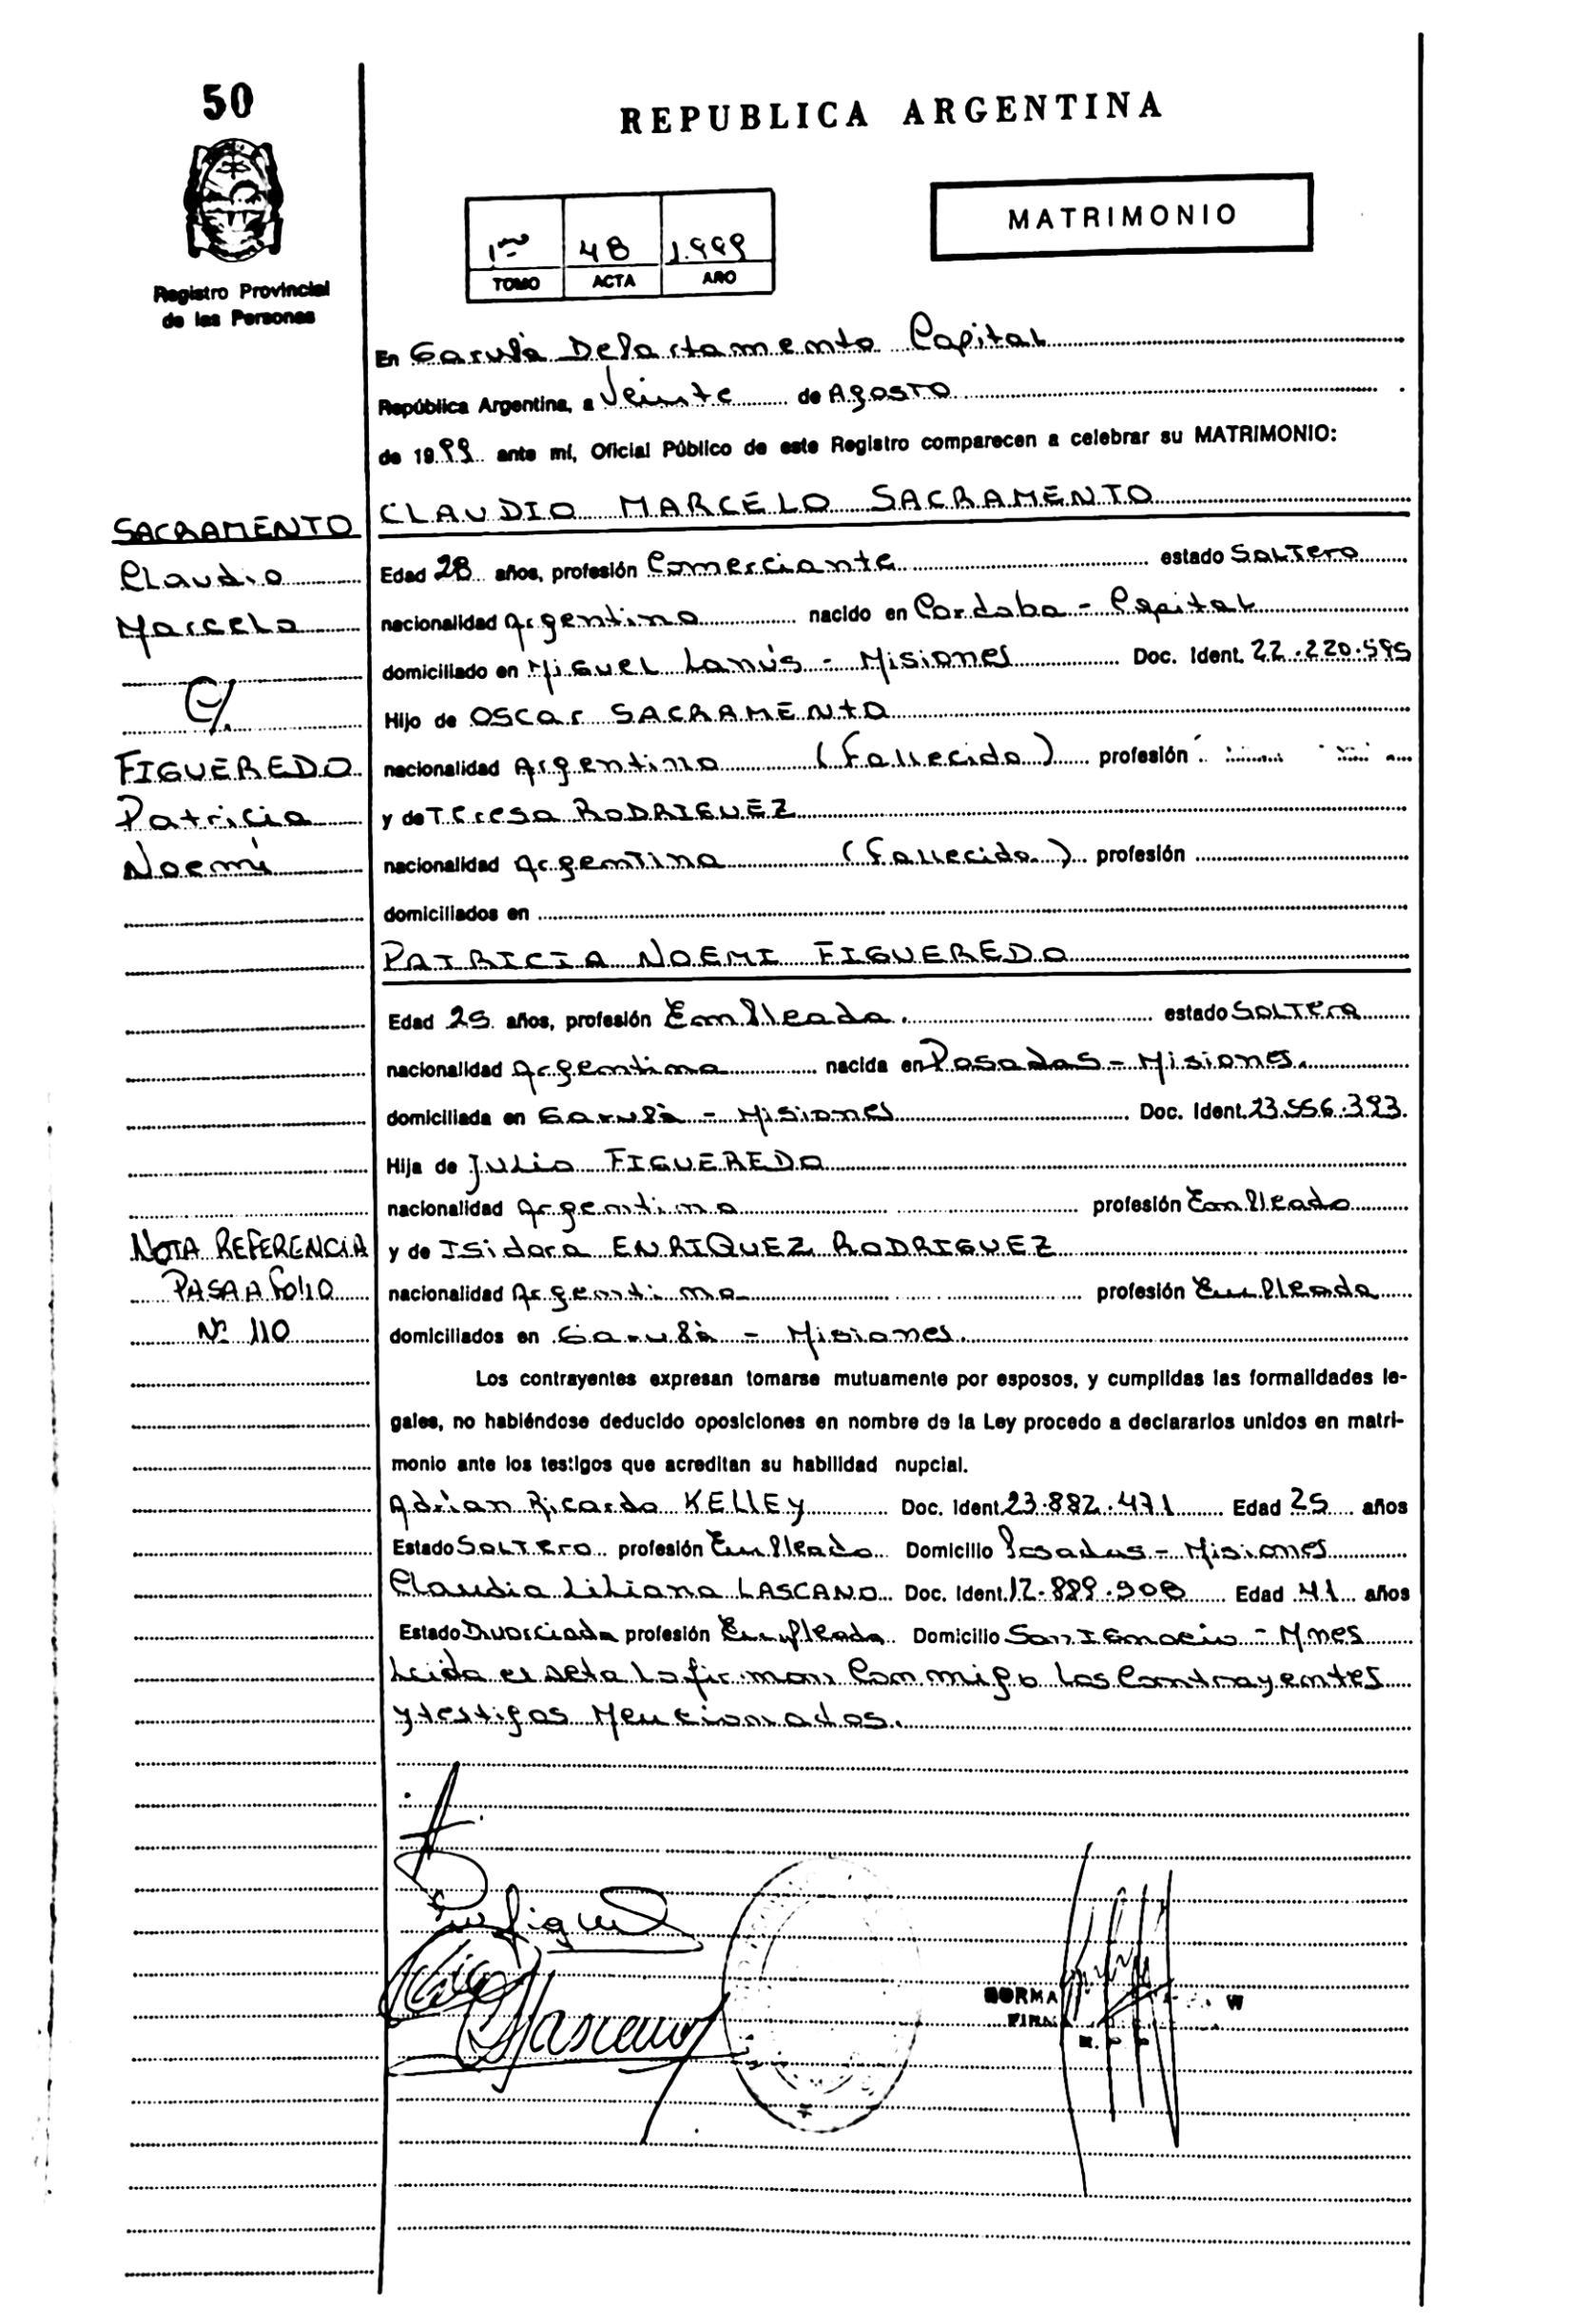 50
REPUBLICA ARGENTINA
MATRIMONIO
1ro 48 1.999
TOMO ACTA AÑO
Registro Provincial
de las Personas
En Garupá Departamento Capital
República Argentina, a Veinte de Agosto
de 1999 ante mí, Oficial Público de este Registro comparecen a celebrar su MATRIMONIO:
CLAUDIO MARCELO SACRAMENTO
SACRAMENTO
Claudio
Marcelo
C/.
FIGUEREDO
Patricia
Noemí
Edad 28 años, profesión Comerciante estado Soltero
nacionalidad Argentino nacido en Cordoba - Capital
domiciliado en Miguel Lanús - Misiones Doc. Ident. 22.220.595
Hijo de Oscar SACRAMENTO
nacionalidad Argentino (Fallecido) profesión
y de Teresa RODRIGUEZ
nacionalidad Argentina (Fallecida) profesión
domiciliados en
PATRICIA NOEMI FIGUEREDO
Edad 25 años, profesión Empleada. estado Soltera
nacionalidad Argentina nacida en Posadas - Misiones.
domiciliada en Garupá - Misiones Doc. Ident. 23.556.393.
Hija de Julio FIGUEREDO
nacionalidad Argentino profesión Empleado
y de Isidora ENRIQUEZ RODRIGUEZ
nacionalidad Argentina profesión Empleada
domiciliados en Garupá - Misiones.
NOTA REFERENCIA
PASA A FOLIO
Nº 110
Los contrayentes expresan tomarse mutuamente por esposos, y cumplidas las formalidades le-
gales, no habiéndose deducido oposiciones en nombre de la Ley procedo a declararlos unidos en matri-
monio ante los testigos que acreditan su habilidad nupcial.
Adrian Ricardo KELLEY Doc. Ident. 23.882.471 Edad 25 años
Estado Soltero profesión Empleado Domicilio Posadas - Misiones
Claudia Liliana LASCANO Doc. Ident. 12.889.908 Edad 41 años
Estado Divorciada profesión Empleada Domicilio San Ignacio - Mnes
Leida el acta La firman Conmigo Los Contrayentes
y testigos Mencionados.
NORMA